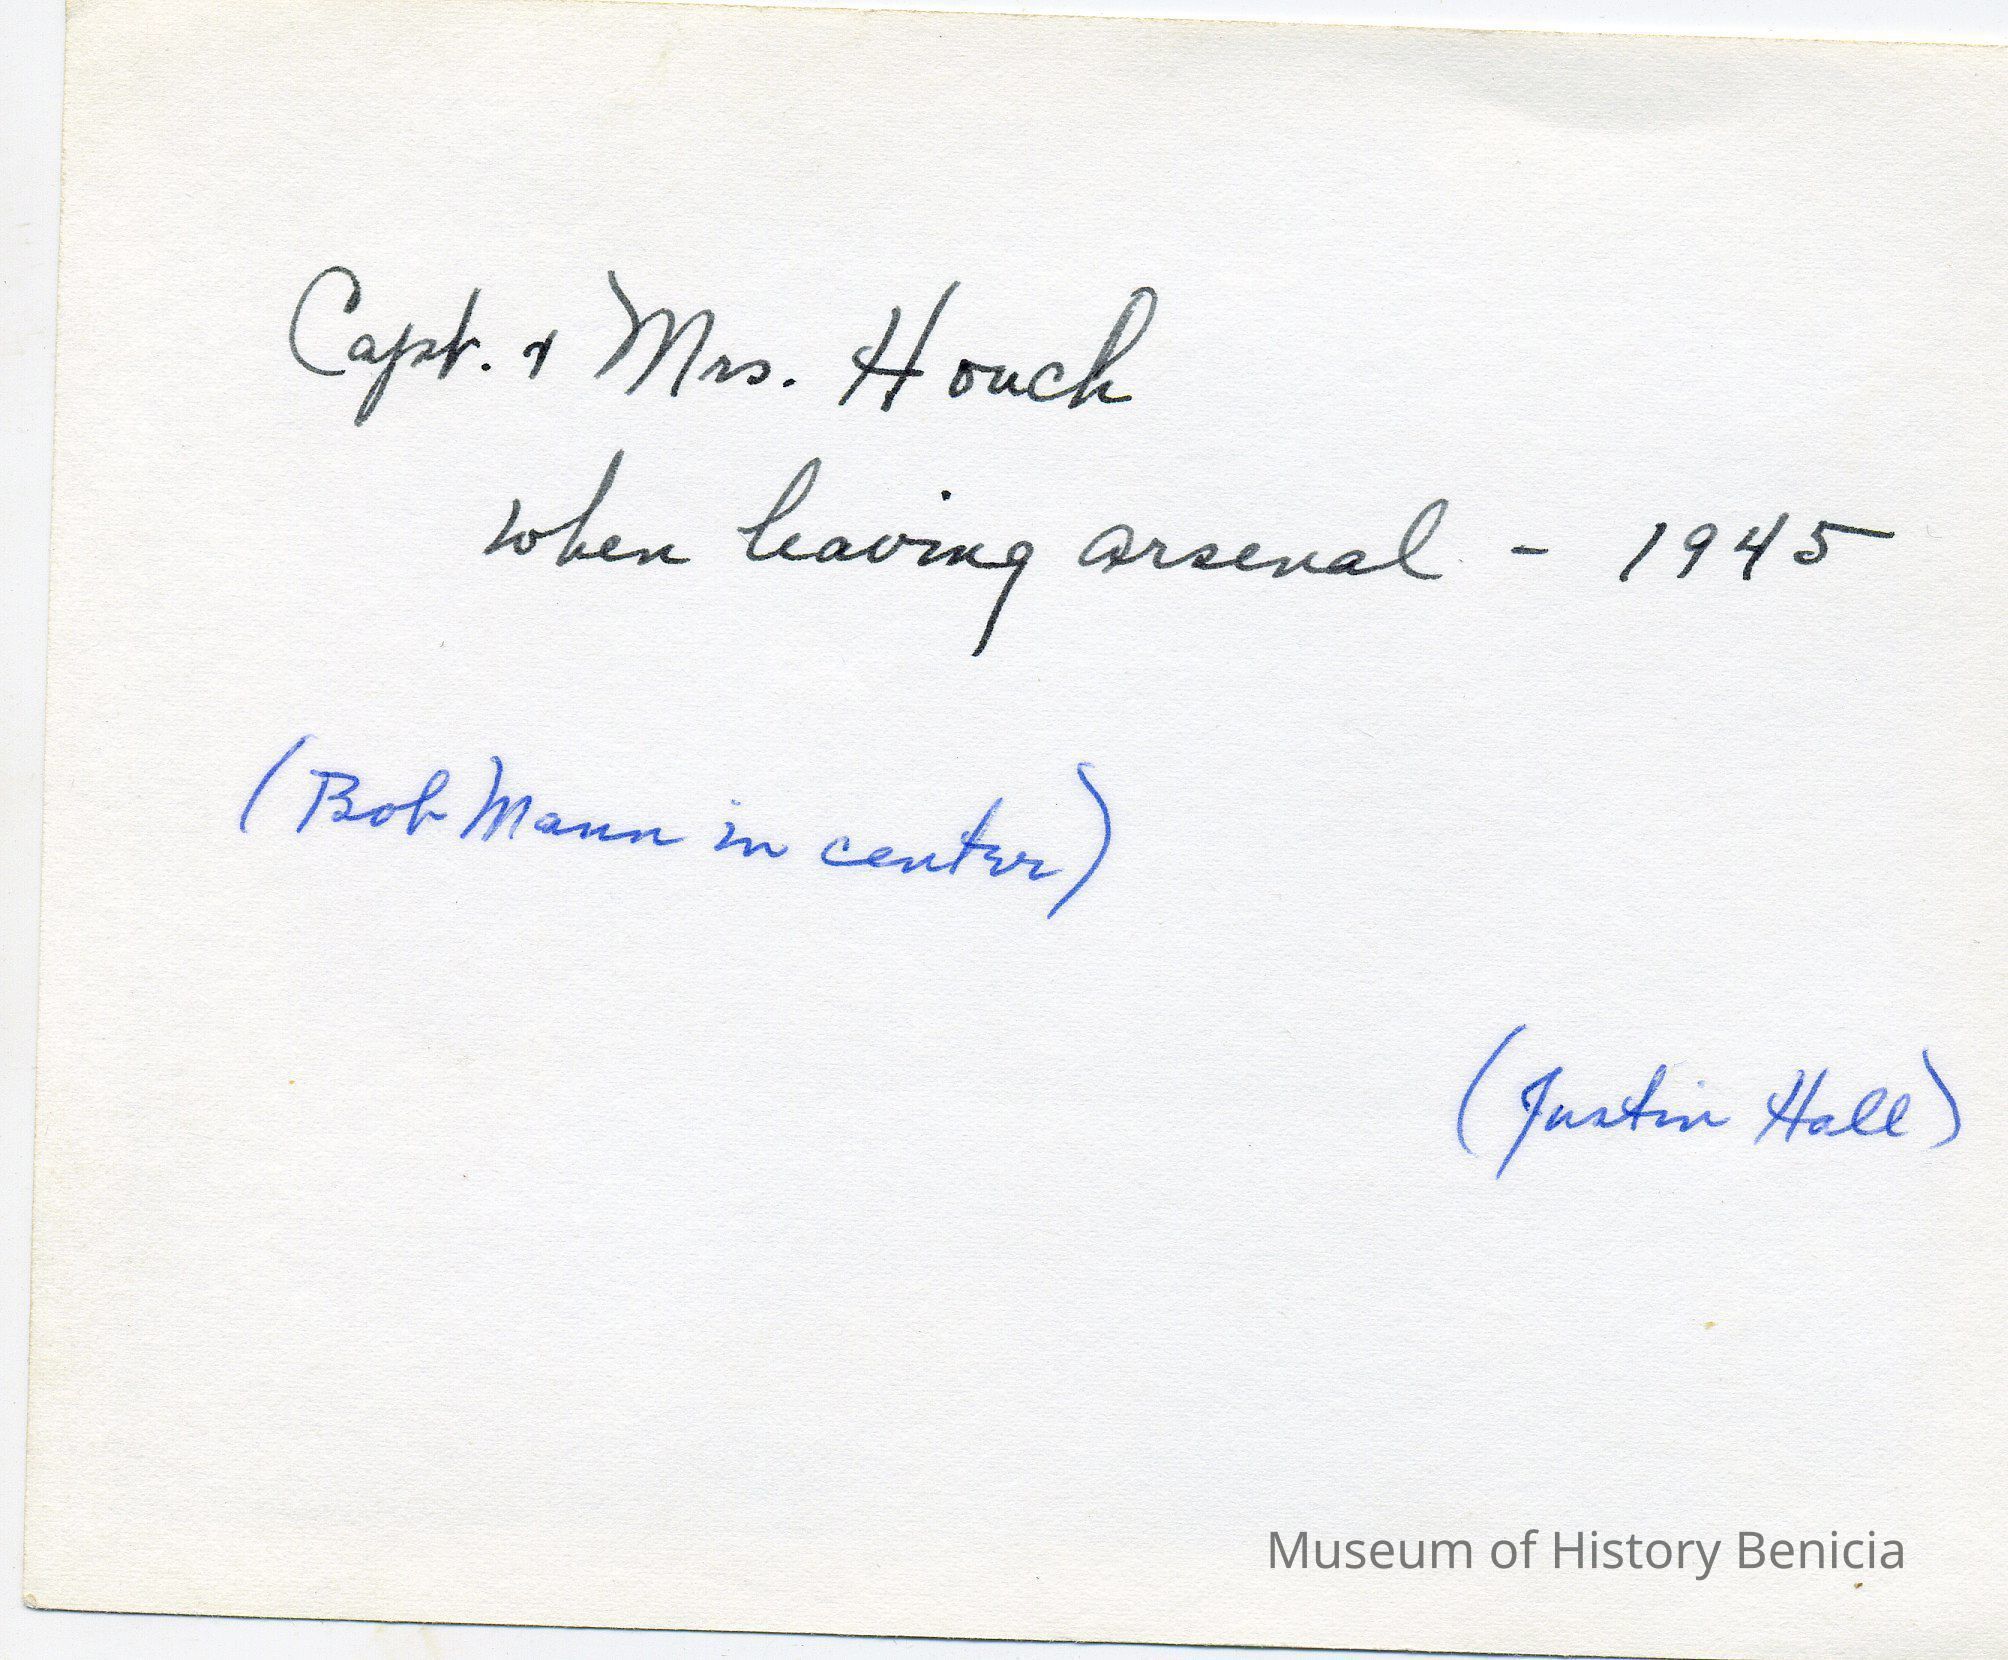 Capt. & Mrs. Houck
when leaving arsenal - 1945
(Bob Mann in center)
(Justin Hall)
Museum of History Benicia